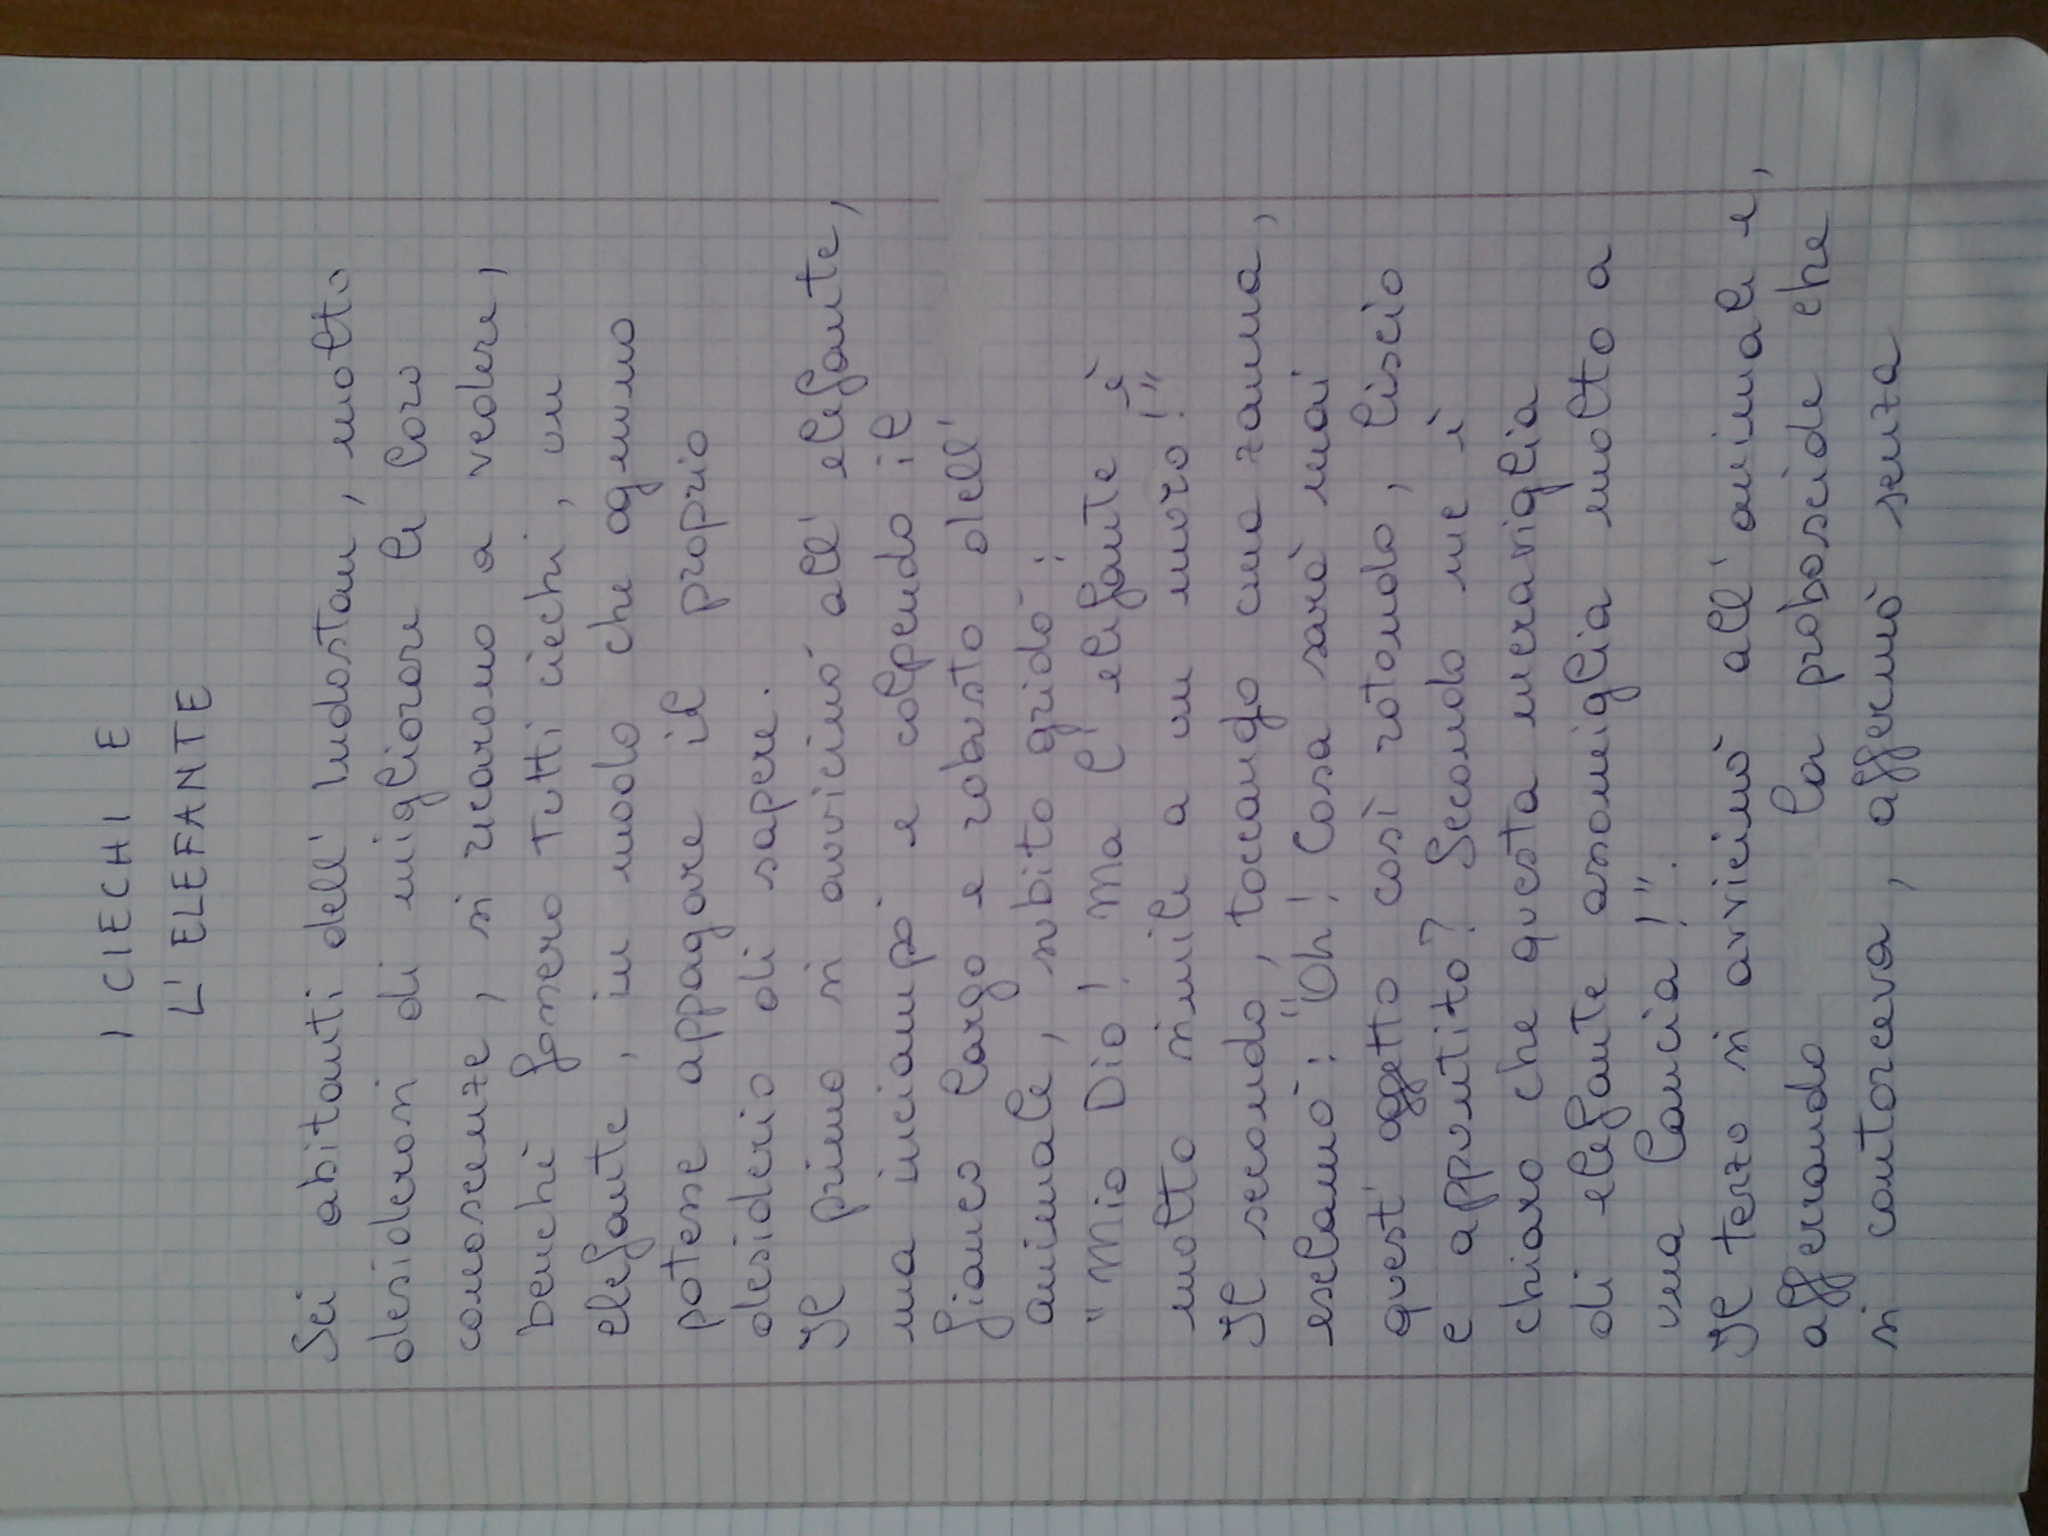 I CIECHI E
L'ELEFANTE
Sei abitanti dell'Indostan, molto
desiderosi di migliorare le loro
conoscenze, si recarono a vedere,
benché fossero tutti ciechi, un
elefante, in modo che ognuno
potesse appagare il proprio
desiderio di sapere.
Il primo si avvicinó all'elefante,
ma inciampó e colpendo il
fianco largo e robusto dell'
animale, subito gridó:
"Mio Dio! Ma l'elefante è
molto simile a un muro!"
Il secondo, toccando una zanna,
esclamò: "Oh! Cosa sarà mai
quest'oggetto così rotondo, liscio
e appuntito? Secondo me è
chiaro che questa meraviglia
di elefante assomiglia molto a
una lancia!".
Il terzo si avvicinò all'animale e,
afferrando la proboscide che
si contorceva, affermò senza